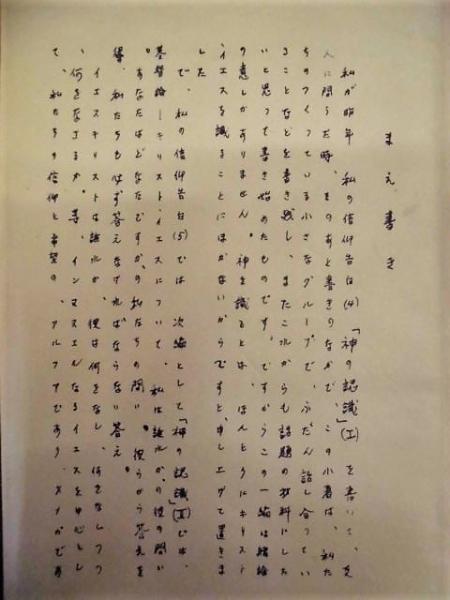 まえ書き
私が昨年、私の信仰告白(4)「神の認識」(I)を書いて、友
人に問うた時、そのあと書きのなかで、この小著は、私た
ちのつくっている小さなグループで、ふだん話し合ってい
ることなどを書き残し、またこれからも話題の材料にした
いと思って書き始めたものです。ですからこの一篇は緒論
の意しかありません。神を識るとは、ほんとうにキリスト
・イエスを識ることにほかないからですと、申し上げて置きま
した
で、私の信仰告白(5)では 次論として「神の認識」(II)では、
基督論―キリスト・イエスについて、私は誰れか、の彼の問い
。あなたはどなたですか、の私たちの問い。彼らから答えを
得、私たちも必ず答えなければならない答え。
イエスキリストは誰れか、彼は何をなし、何をなしつつ
、何をなさるか。等、インマヌエルなるイエスを中心とし
て、私たちの信仰と希望の、アルファであり、オメガであ